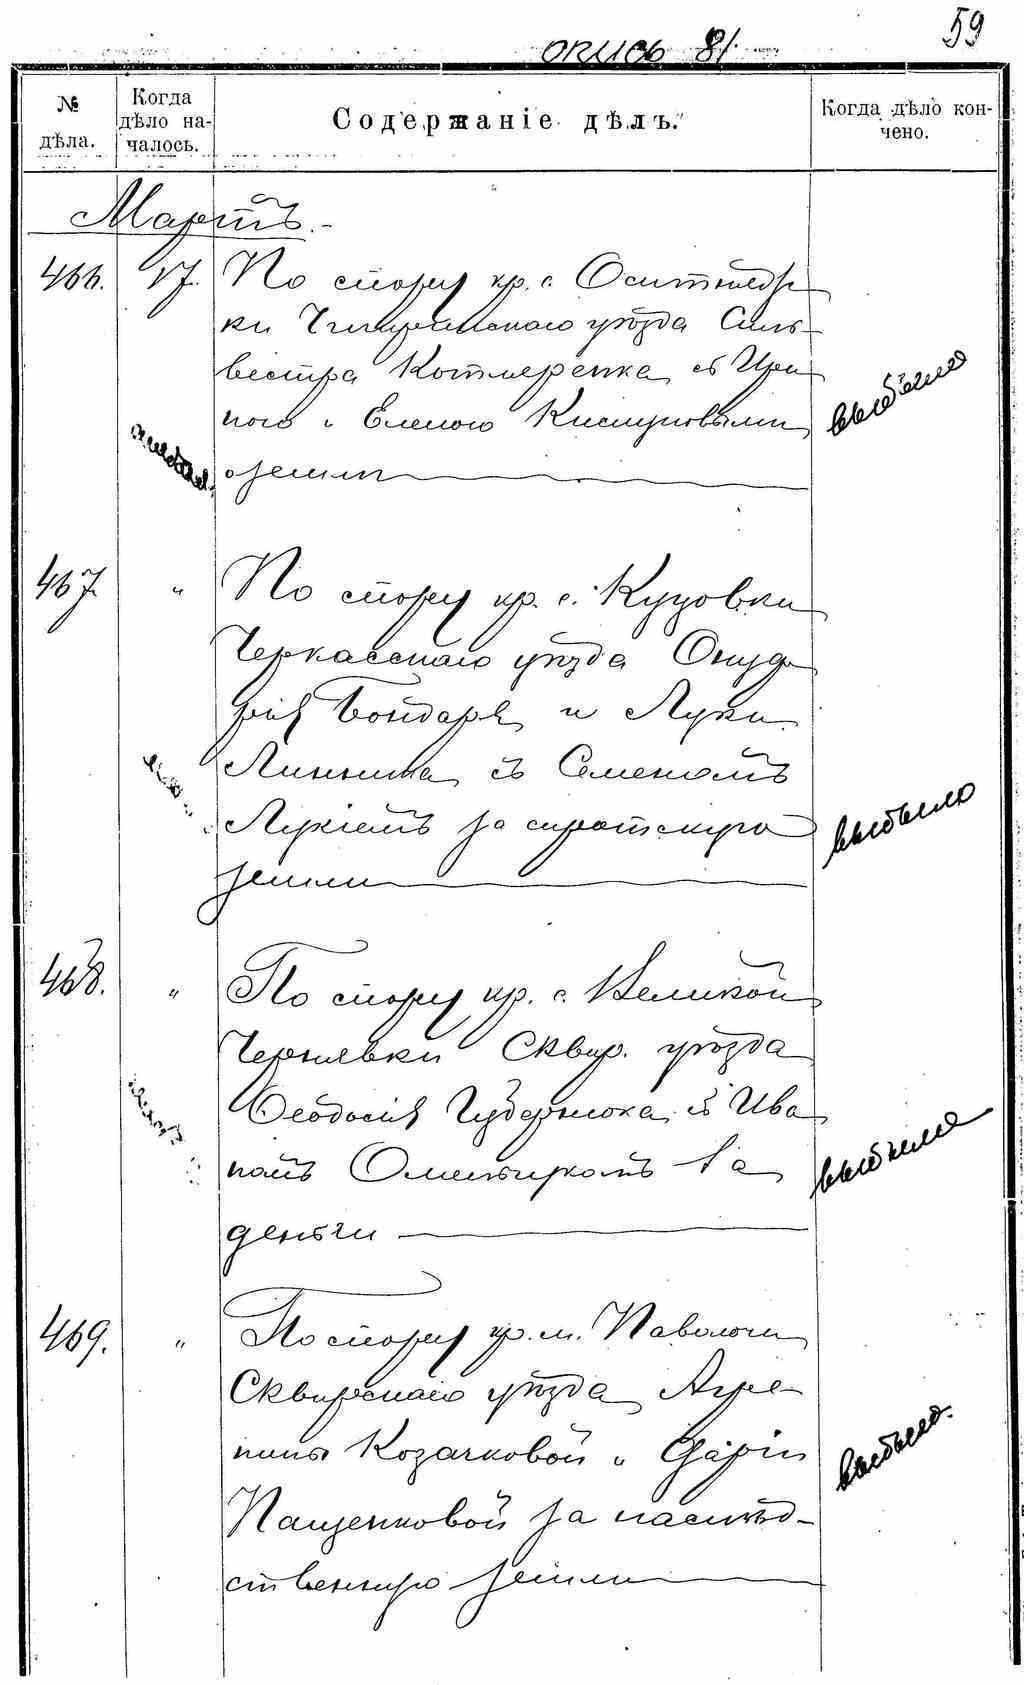 59
опись 81.
№ дѣла.
Когда дѣло началось.
Содержаніе дѣлъ.
Когда дѣло кончено.
Мартъ.
466. 17. По спору кр. с. Оситняж-
ки Чигиринскаго уѣзда Силь-
вестра Котляренка съ Ири
ною и Еленою
о земли
выбыло
467. " По спору кр. с. Куцовки
Черкасскаго уѣзда Онуф
рія Бондаря и Луки
Линника съ Семеномъ
за сиротскую
земли
выбыло
468. " По спору кр. с. Великой
Чернявки Сквир. уѣзда
Ѳеодосія Губернюка съ Ива
номъ за
деньги
выбыло
469. " По спору кр. м. Паволочи
Сквирскаго уѣзда Агре-
пины Козачковой и Дарiи
Пащенковой за наслѣд-
ственную земли
выбыло.